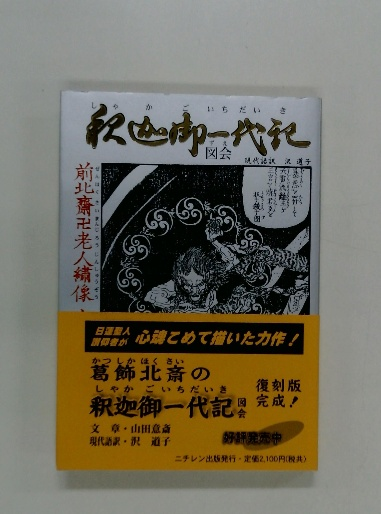 しゃかごいちだいき
釈迦御一代記
ずえ
図会
現代語訳 沢 道子
前北齋卍老人繡像
日蓮聖人
信仰者が 心魂こめて描いた力作!
かつしかほくさい
葛飾北斎の
しゃかごいちだいき
釈迦御一代記図会
復刻版
完成!
文章・山田意斎
現代語訳・沢 道子
好評発売中
ニチレン出版発行・定価2,100円(税共)